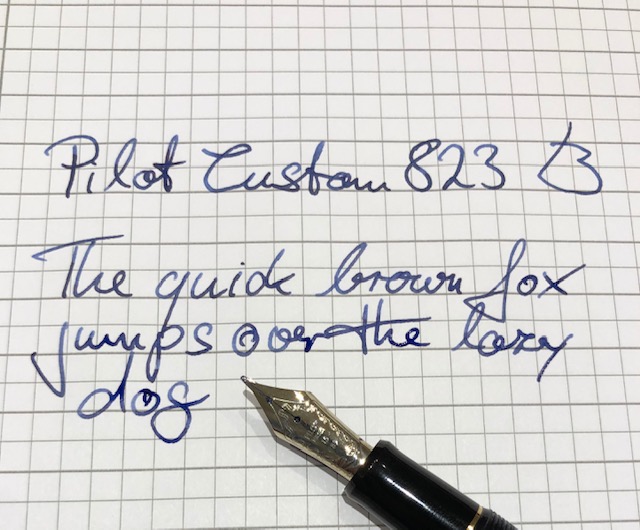 Pilot Custom 823 B
The quick brown fox
jumps over the lazy
dog